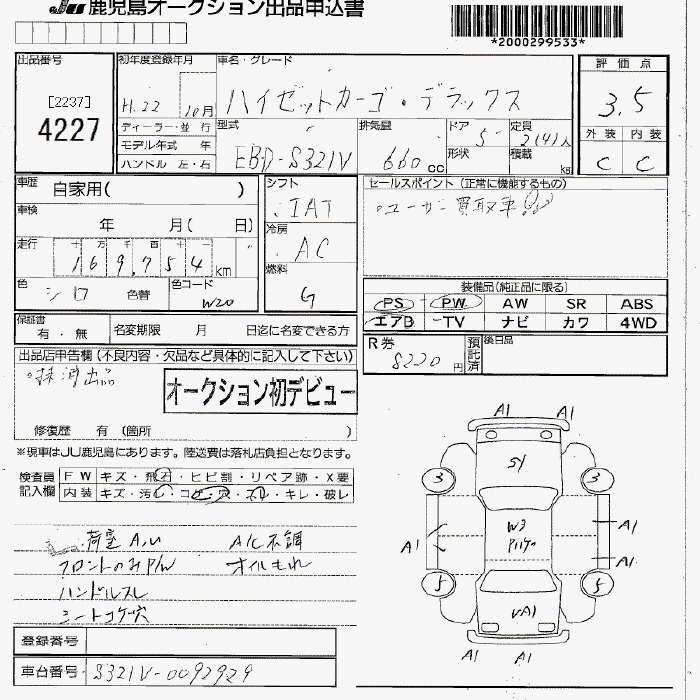 JU 鹿児島オークション出品申込書
*2000299533*
出品番号
[2237]
4227
初年度登録年月
H.22 10月
ディーラー・並行
モデル年式 年
ハンドル 左・右
車名・グレード
ハイゼットカーゴ・デラックス
型式
EBD-S321V
排気量
660 cc
ドア 5
形状
定員
2(4)人
積載
kg
評価点
3.5
外装 内装
C C
車歴 自家用( )
車検
年 月( 日)
走行
十 万 千 百 十 一
169,754 km
色 シロ 色替
色コード
W20
シフト
IAT
冷房
AC
燃料
G
セールスポイント (正常に機能するもの)
・ユーザー買取車!!
装備品(純正品に限る)
PS PW AW SR ABS
エアB TV ナビ カワ 4WD
保証書
有・無
名変期限 月 日迄に名変できる方
R券
8220円
預託済
後日品
出品店申告欄(不良内容・欠品など具体的に記入して下さい)
・抹消出品
オークション初デビュー
修復歴 有 (箇所 )
※現車はJU鹿児島にあります。陸送費は落札店負担となります。
検査員
記入欄
FW キズ・飛石・ヒビ割・リペア跡・X要
内装 キズ・汚し・コゲ・穴・スレ・キレ・破レ
荷室A,U A/C不調
フロントのみP/W オイルもれ
ハンドルスレ
シートコゲ穴
登録番号
車台番号 S321V-0092929
A1 A1
SY
3 3
W3
A1 A1
A1
5 5
A1 A1